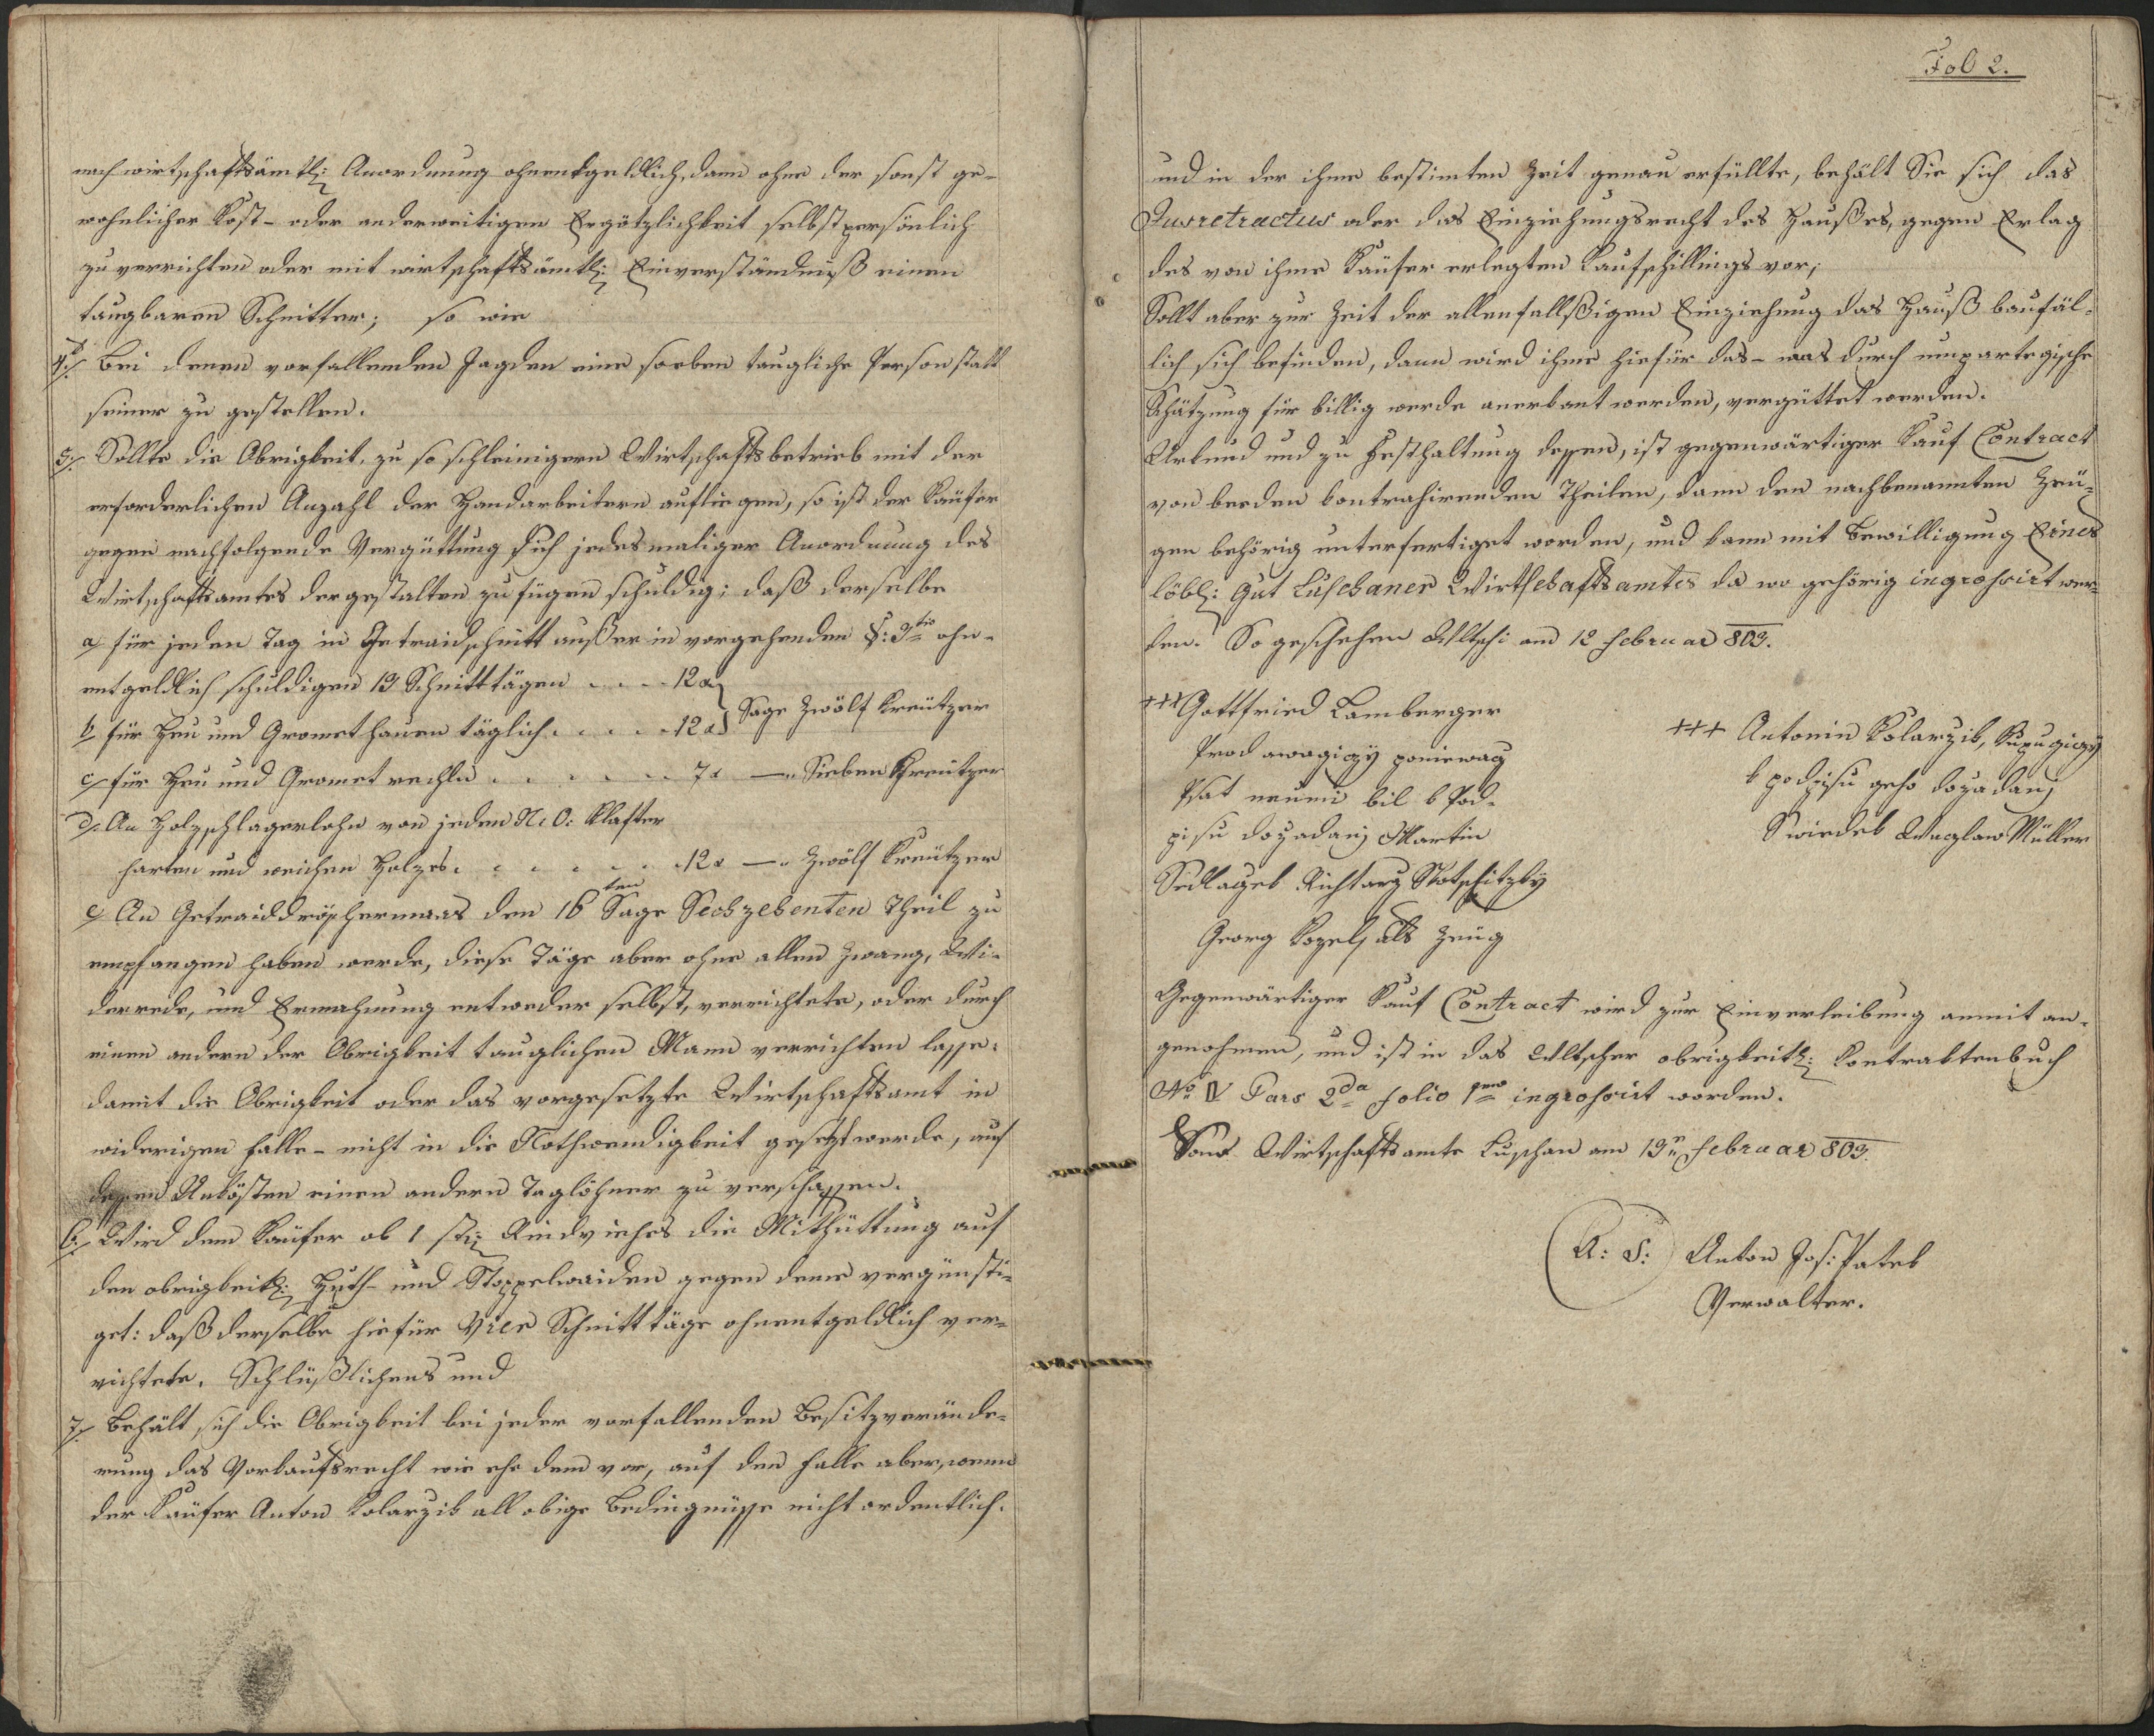 nach wirtschaftsämtl: Anordnung ohnentgeldlich, dann ohne der sonst ge-
wohnlicher Kost- oder anderweitigen Ergötzlichkeit selbst persönlich
zu verrichten oder mit wirtschaftsämtl: Einverständniß einen
taugbaren Schnitter; so wie
4to/ Bei denen vorfallenden Jagden eine soeben taugliche Person statt
seiner zu gestellen.
5/. Sollte die Obrigkeit, zu so schleinigern Wirtschaftsbetrieb mit der
erforderlichen Anzahl der Handarbeitern aufliegen, so ist der Käufer
gegen nachfolgende Vergüttung sich jedesmaliger Anordnung des
Wirtschaftsamtes dergestalten zu fügen schuldig; daß derselbe
a/ für jeden Tag in Getraidschnitt außer in vorgehenden §: 3tio ohn-
entgeldlich schuldigen 13 Schnitttägen . . . . 12 x
b/ für Heu und Gromet hauen täglich . . . . . 12 x } Sage Zwölf Kreützer
c/ für Heu und Gromet rechln . . . . . . 7 x —„ Sieben Kreützer
d/. An Holzschlagerlohn von jeden N: O: Klafter
harten und weichen Holzes . . . . . . 12 x —„ Zwölf Kreützer
e/ An Getraiddröschermaas den 16ten Sage Sechzehenten Theil zu
empfangen haben werde, diese Täge aber ohne allen Zwang, Wi-
derrede, und Ermahnung entweder selbst, verrichtete, oder durch
einen andern der Obrigkeit tauglichen Mann verrichten lasse.
damit die Obrigkeit oder das vorgesetzte Wirtschaftsamt in
widerigen Falle - nicht in die Nothwendigkeit gesetzt werde, auf
dessen Unkösten einen andern Taglöhner zu verschaffen.
6/. Wird dem Käufer ob 1 stk: Rindviehes die Mithüttung auf
den obrigkeitl: Huth- und Stoppelwaiden gegen deme vergünsti-
get: daß derselbe hiefür Vier Schnitttäge ohnentgeldlich ver-
richtete. Schlüßlichens und
7/. Behält sich die Obrigkeit bei jeder vorfallenden Besitzverände-
rung das Vorkaufsrecht wie ehe dem vor, auf den Falle aber, wenn
der Käufer Anton Kolarzik all obige Bedingnüsse nicht ordentlich.
Fol 2.
und in der ihme bestimten Zeit genau erfüllte, behält Sie sich das
Jus retractus oder das Einziehungsrecht des Haußes, gegen Erlag
des von ihme Käufer erlegten Kaufschillings vor;
Sollt aber zur Zeit der allenfallßigen Einziehung das Hauß baufäl-
lich sich befinden, dann wird ihme hiefür das - was durch unpartegische
Schätzung für billig werde anerkant werden, vergüttet werden.
Urkund und zu Festhaltung dessen, ist gegenwärtiger Kauf Contract
von beeden kontrahirenden Theilen, dann den nachbenannten Zeü-
gen behörig unterfertiget worden, und kann mit Bewilligung Eines
löbl: Gut Luschaner Wirthschaftsamtes da wo gehörig ingrossirt wer-
den. So geschehen Wltschi am 12 Februar 803.
+++ Gottfried Bamberger
Prodawagiczy poniewaz
Psat neumi bil k Pod-
pisu dozadany Martin
Sedlaczek Richtarz
Georg Kozel als Zeüg
+++ Antonin Kolarzik, Kupugiczy
k podpisu geho dozadany
Swiedek Waczlaw Müller
Gegenwärtiger Kauf Contract wird zur Einverleibung anmit an-
genohmen, und ist in das Wltscher obrigkeitl: Kontraktenbuch
No IV Pars 2da folio 1mo ingrossirt worden.
Wirtschaftsamte Luschan am 13n Februar 803.
(L: S:) Anton Jos: Patek
Verwalter.